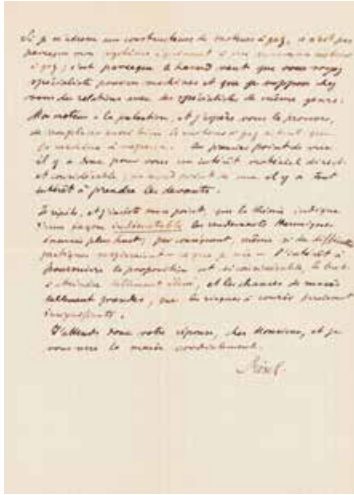 Si je m'adresse aux constructeurs de moteurs à gaz, ce n'est pas
parce que mon système
à gaz ; c'est parce que le hasard veut que vous soyez
spécialiste pour ces machines et que je suppose chez
vous des relations avec des spécialistes du même genre.
Mon moteur a la prétention, et j'espère vous le prouver,
de remplacer aussi bien le moteur à gaz que
la machine à vapeur. Au premier point de vue
il y a donc pour vous un intérêt matériel direct
et considérable, au second point de vue il y a tout
intérêt à prendre les devants.
Je répète, et j'insiste sur ce point, que la théorie indique
d'une façon indiscutable les rendements thermiques
énoncés plus haut ; par conséquent, même si de difficultés
pratiques l'intérêt à
poursuivre la proposition est si considérable, le but
à atteindre tellement élevé, et les chances de succès
tellement grandes, que les risques à courir
insignifiants.
J'attends donc votre réponse, cher Monsieur, et je
vous serre la main cordialement.
Diesel